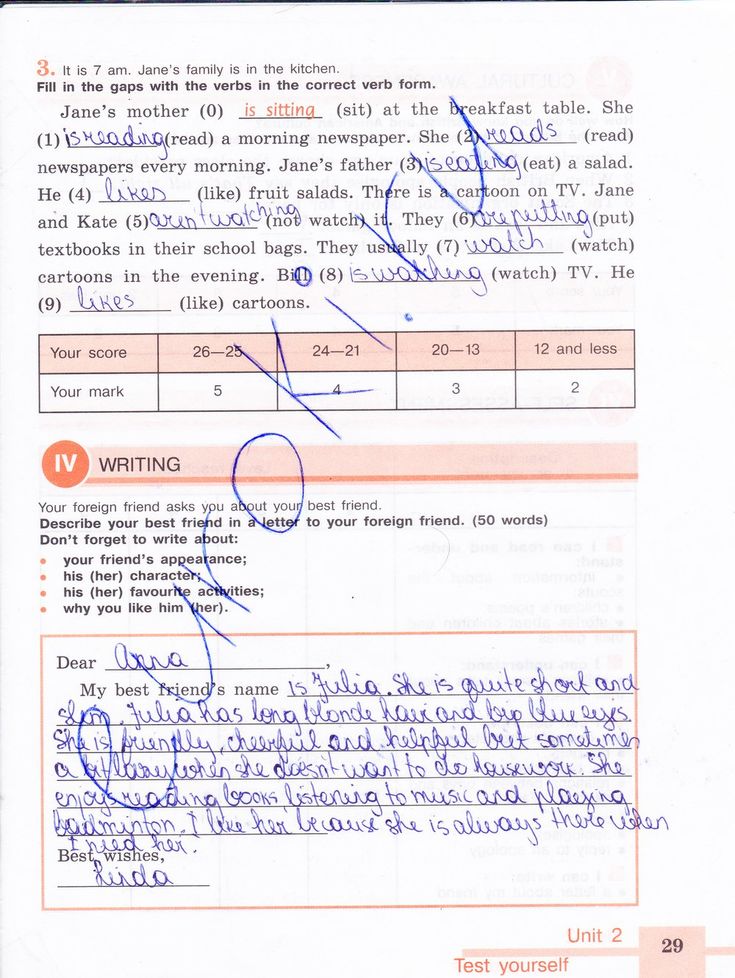 3. It is 7 am. Jane's family is in the kitchen.
Fill in the gaps with the verbs in the correct verb form.
Jane's mother (0) is sitting (sit) at the breakfast table. She
(1) is reading (read) a morning newspaper. She (2) reads (read)
newspapers every morning. Jane's father (3) is eating (eat) a salad.
He (4) likes (like) fruit salads. There is a cartoon on TV. Jane
and Kate (5) aren't watching (not watch) it. They (6) are putting (put)
textbooks in their school bags. They usually (7) watch (watch)
cartoons in the evening. Bill (8) is watching (watch) TV. He
(9) likes (like) cartoons.
Your score 26—25 24—21 20—13 12 and less
Your mark 5 4 3 2
IV WRITING
Your foreign friend asks you about your best friend.
Describe your best friend in a letter to your foreign friend. (50 words)
Don't forget to write about:
• your friend's appearance;
• his (her) character;
• his (her) favourite activities;
• why you like him (her).
Dear Anna,
My best friend's name is Julia. She is quite short and
slim. Julia has long blonde hair and big blue eyes.
She is friendly, cheerful and helpful but sometimes
a bit lazy when she doesn't want to do housework. She
enjoys reading books listening to music and playing
badminton. I like her because she is always there when
I need her.
Best wishes,
Linda
Unit 2
Test yourself
29